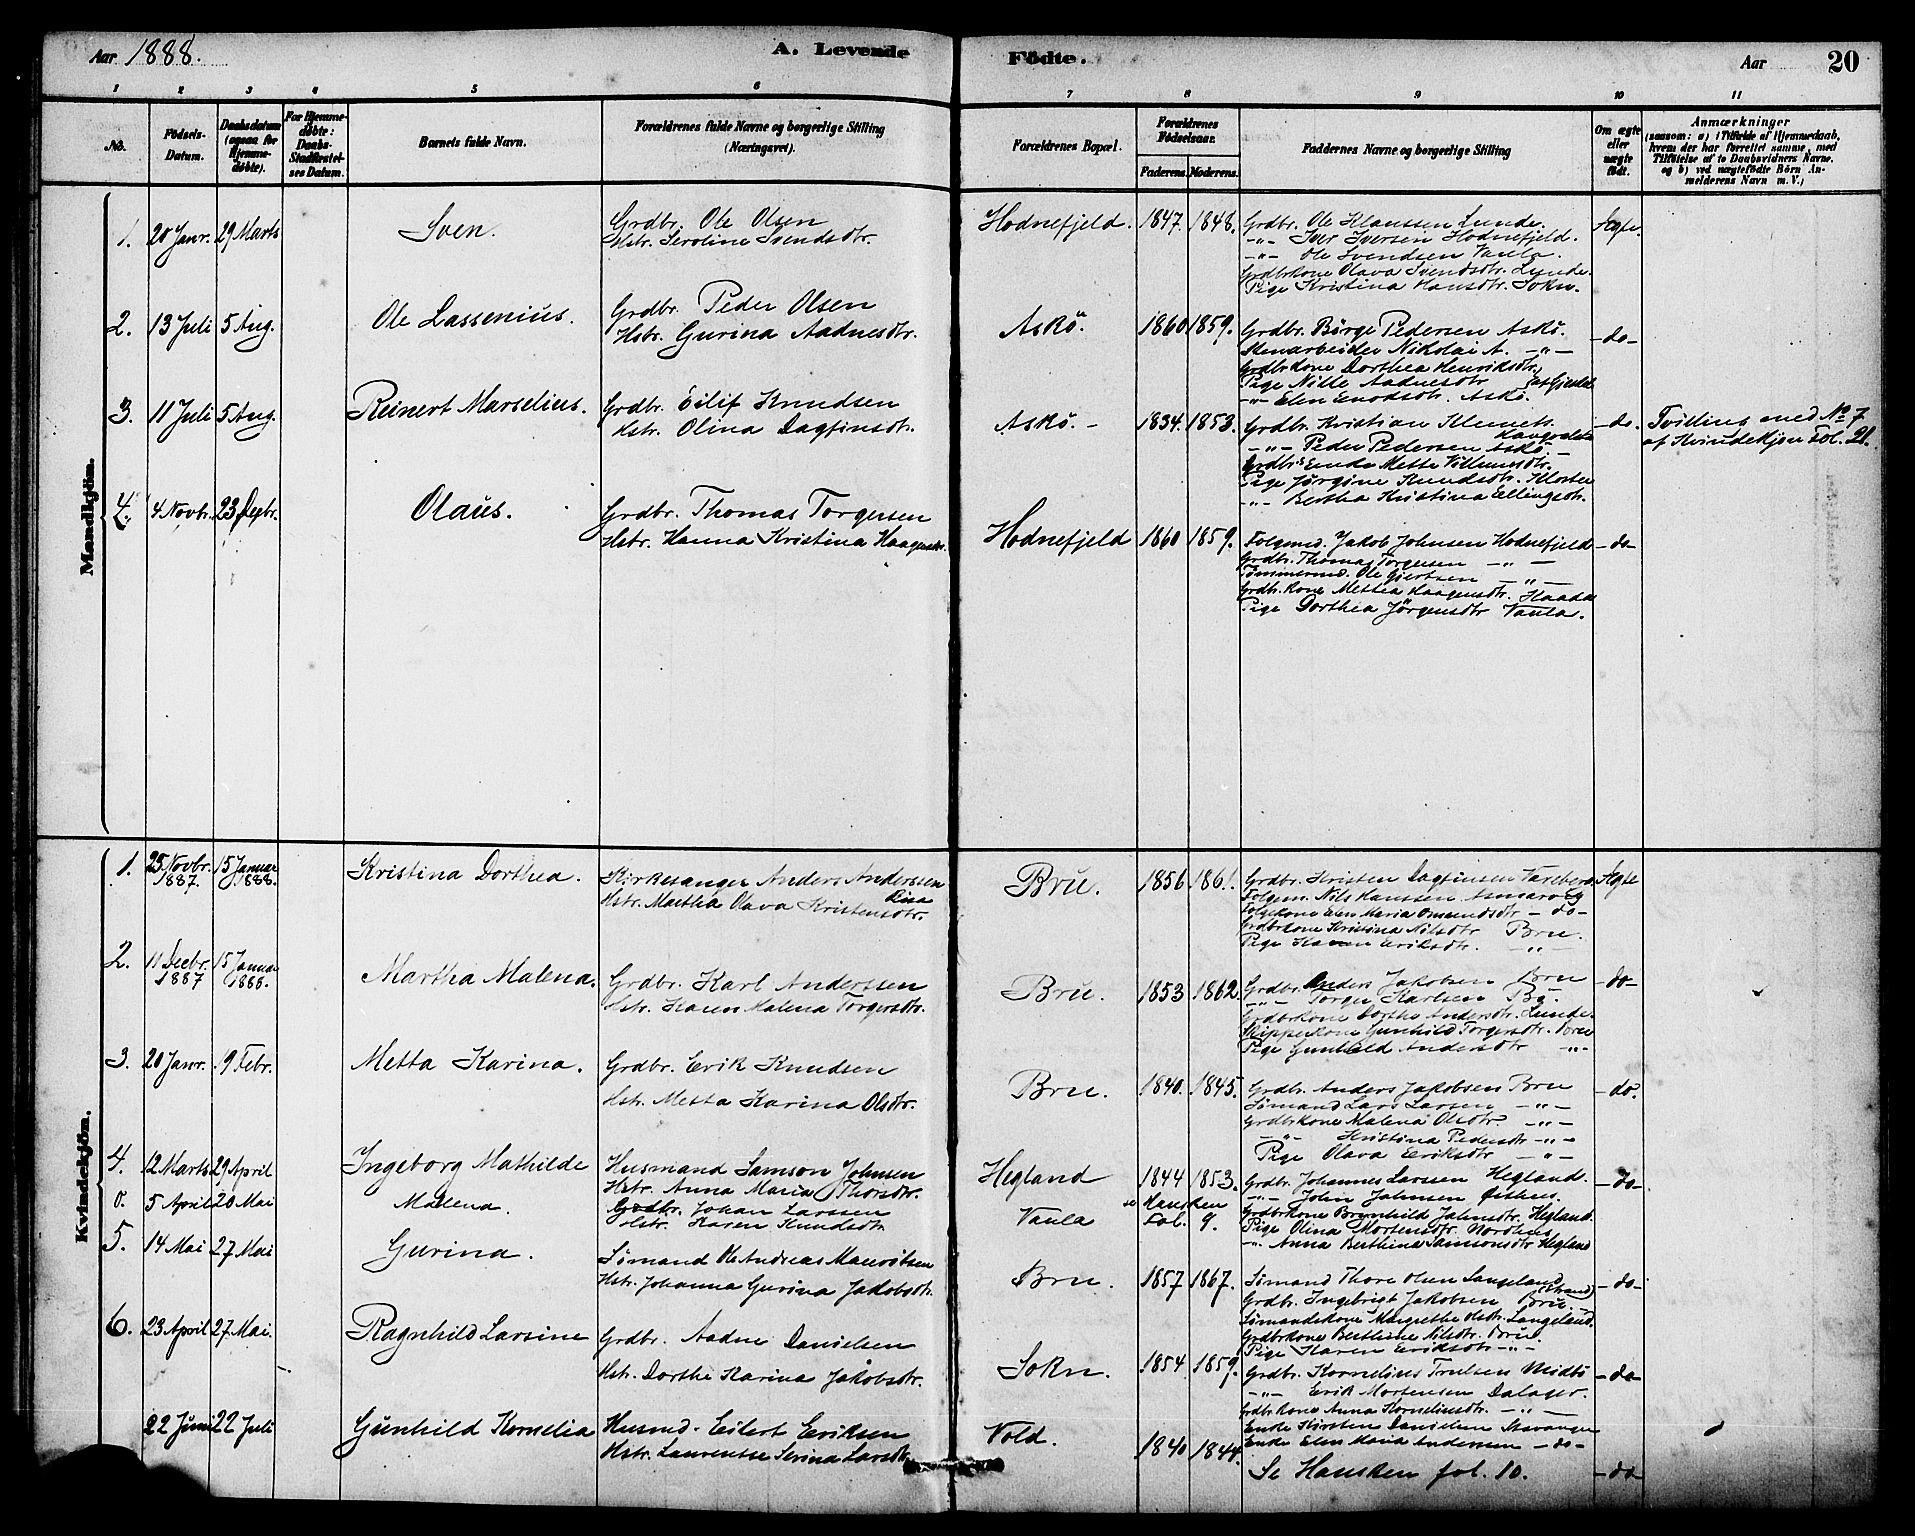 Aar 1888. A. Levende Födte. Aar 20
1 2 3 4 5 6 7 8 9 10 11
No. Födsels-Datum. Daabsdatum (ogsaa for Hjemmedøbte). For Hjemmedøbte: Daabs-Stadfæstelses Datum. Barnets fulde Navn. Forældrenes fulde Navne og borgerlige Stilling (Næringsvei). Forældrenes Bopæl. Forældrenes Födselsaar. Faderens. Moderens. Faddernes Navne og borgerlige Stilling Om ægte eller uægte født. Anmærkninger (saasom: a) i Tilfælde af Hjemmedaab, hvem der har forrettet samme, med Tilføielse af to Daabsvidners Navne. og b) ved uægtefødte Börn Anmelderens Navn m. V.)
Mandkjön.
1. 20 Janr. 29 Marts Sven. Grdbr. Ole Olsen Hodnefjeld. 1847. 1848. Grdbr. Ole Klaussen Lunde. Ægte.
Hstr. Seroline Svendsdtr. -"- Iver Iversen Hodnefjeld.
-"- Ole Svendsen Vaula.
Grdbrkone Olava Svendsdtr. Lunde.
Pige Kristina Hansdtr. Sokn.
2. 13 Juli 5 Aug. Ole Lassenius. Grdbr. Peder Olsen Askö. 1860 1859. Grdbr. Börge Pedersen Askö. -do-
Hstr. Gurina Aadnesdtr. Stenarbeider Nikolai A. -"-
Grdbrkone Dorthea Henriksdtr.
Pige Nille Aadnesdtr
-"- Elen Enodsdtr. Askö.
3. 11 Juli 5 Aug. Reinert Marselius. Grdbr. Eilif Knudsen Askö. - 1834. 1853. Grdbr. Kristian Klemets. -do. Tvilling med No 7
Hstr. Olina Dagfinsdtr. -"- Peder Pedersen Askö - af Kvindekjön Fol. 21.
Grdbrs Enke Mette Villumsdtr.
Pige Jørgine Knudsdtr. Kloster
-"- Bertha Kristina Ellingsdtr.
4. 4 Novbr. 23 Decbr. Olaus. Grdbr. Thomas Torgersen Hodnefjeld 1860 1859. Folgemd. Jakob Johnsen Hodnefjeld -do-
Hstr. Hanna Kristina Haagensdtr. Grdbr. Thomas Torgersen -"-
Tömmermd. Ole Gjertsen -"-
Grdbr.kone Mettea Haagensdtr. Haada
Pige Dorthea Jörgensdtr Vaula.
Kvindekjön.
1. 25 Novbr. 1887. 15 Januar 1888. Kristina Dorthea. Kirkesanger Anders Anderssen Bru. 1856 1861. Grdbr. Kristen Dagfinsen Fareberg. Ægte
Hstr. Martha Olava Kristensdtr. Folgem. Nils Hanssen Asmarvig
Folgekone Elen Maria Omundsdtr -do-
Grdbrkone Kristina Nilsdtr Bru.
Pige Karen Eriksdtr. -"-
2. 11 Decbr. 1887 15 Januar 1888. Martha Malena. Grdbr. Karl Anderssen Bru. 1853 1862 Grdbr. Anders Jakobsen Bru -do-
Hstr. Karen Malena Torgersdtr. -"- Torger Karlsen Bö.
Grdbrkone Dorthe Andersdtr. Lunde.
Skipperkone Gunhild Torgersdtr. Bru
Pige Gunhild Andersdtr -"-
3. 20 Janr. 9 Febr. Metta Karina. Grdbr. Erik Knudsen Bru. 1840. 1845. Grdbr. Anders Jakobsen Bru -do.
Hstr. Metta Karina Olsdtr. Sömand Lars Larsen -"-
Grdbrkone Malena Olsdtr -"-
-"- Kristina Pedersdtr -"-
Pige Olava Eriksdtr -"-
4. 12 Marts 29 April Ingeborg Mathilde Husmand Samson Johnsen Hegland 1844 1853. Grdbr. Johannes Larssen Hegland. -do-
Hstr. Anna Maria Thorsdtr. -"- John Johnsen Østhus.
0. 5 April 20 Mai Malena. Grdbr. Johan Larssen Vaula se Hausken Fol. 9. Grdbrkone Brynhild Johnsdtr. Hegland.
Hstr. Karen Knudsdtr Pige Olina Mortensdtr. Nordhus
-"- Anna Berthina Samsonsdtr Hegland
5. 14 Mai 27 Mai Gurina. Sömand Ole Andreas Mauritsen Bru. 1857 1867. Sömand Thore Olsen Langeland (Strand) -do-
Hstr. Johanna Gurina Jakobsdtr. Grdbr. Ingebrigt Jakobsen Bru -
Sömandskone Margrethe Olsdtr. Langeland.
Grdbrkone Berthine Nilsdtr. Bru.
Pige Karen Eriksdtr -"-
6. 23 April 27. Mai. Ragnhild Larsine Grdbr. Aadne Danielsen Sokn. 1854. 1859. Grdbr. Kornelius Trulsen Midtö -do-
Hstr. Dorthe Karina Jakobsdtr. -"- Erik Mortensen Dalager.
Grdbrkone Anna Korneliusdtr. -"-
Enke Kirsten Danielsen Stavanger
Enke Elen Maria Andersen -do-
22 Juni 22 Juli Gunhild Kornelia Husmd. Eilert Eriksen Vold. 1840 1844. Se Hausken fol. 10. -do
Hstr. Laurentse Serina Larsdtr.